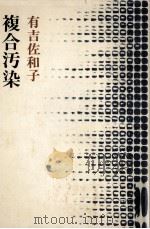 有吉佐和子
複合汚染